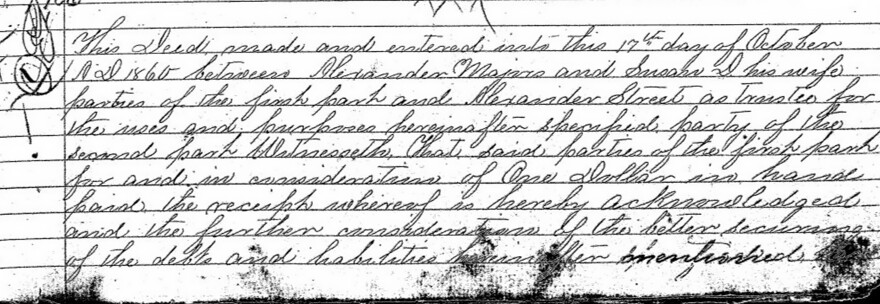 This Deed, made and entered into this 17th day of October
A D 1860 between Alexander Majors and Susan D his wife
parties of the first part and Alexander Street as Trustee for
the uses and, purposes hereinafter specified, party of the
second part Witnesseth, That, said parties of the first part
for and in consideration of One Dollar in hand
paid, the receipt whereof is hereby acknowledged
and the further consideration of the better securing
of the debts and liabilities hereinafter mentioned,